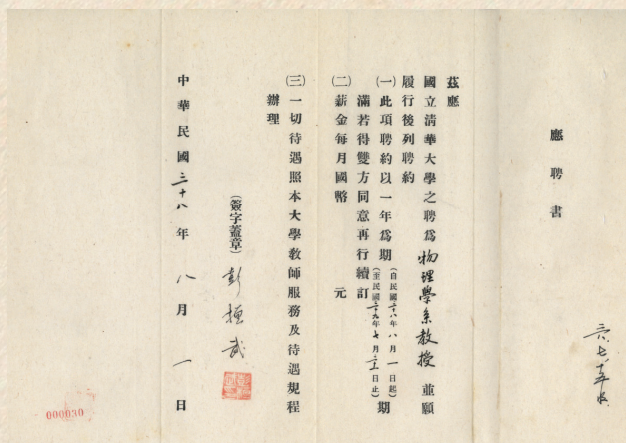 應聘書
茲應
國立清華大學之聘爲物理學系教授並願
履行後列聘約
(一)此項聘約以一年爲期(自民國三十八年八月一日起)(至民國三十九年七月三十一日止)期
滿若得雙方同意再行續訂
(二)薪金每月國幣 元
(三)一切待遇照本大學教師服務及待遇規程
辦理
(簽字蓋章)彭桓武
中華民國三十八年八月一日
000030